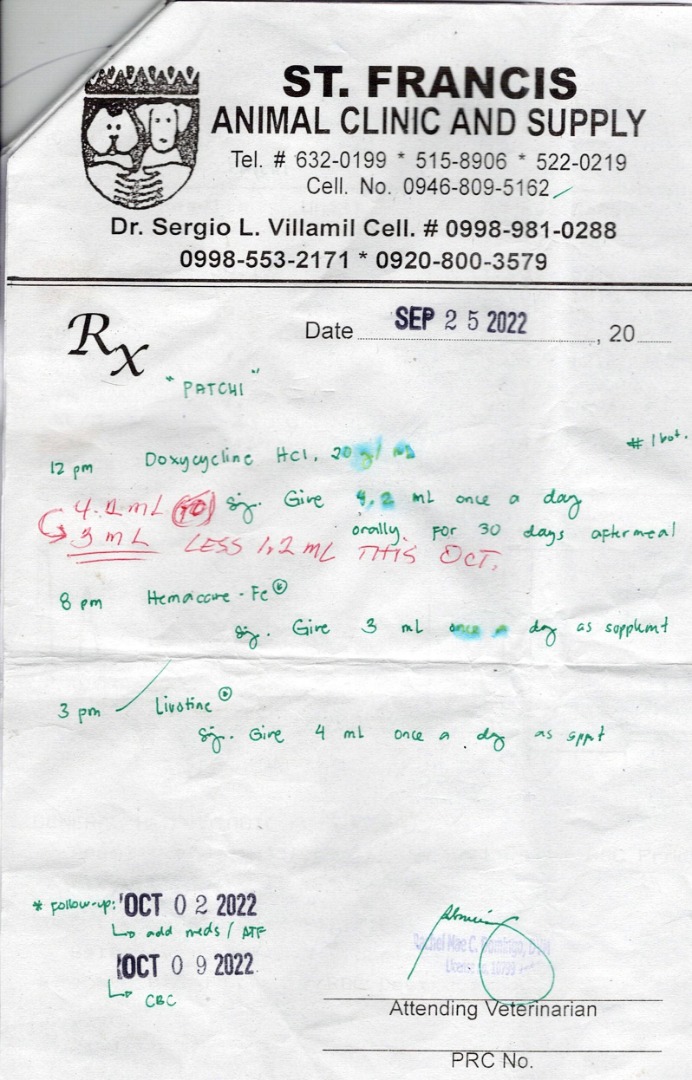 ST. FRANCIS
ANIMAL CLINIC AND SUPPLY
Tel. # 632-0199 * 515-8906 * 522-0219
Cell. No. 0946-809-5162
Dr. Sergio L. Villamil Cell. # 0998-981-0288
0998-553-2171 * 0920-800-3579
Rx
Date SEP 25 2022, 20
"PATCHI"
# 1 bot.
12 pm Doxycycline HCl. 20
4.2 mL Sig. Give 4.2 mL once a day
3 mL orally for 30 days after meal
LESS 1.2 mL THIS OCT.
8 pm Hemacare-Fe ®
Sig. Give 3 mL once a day as supplemt
3 pm Livotine ®
Sig. Give 4 mL once a day as sppt
* Follow-up: OCT 02 2022
add meds / ATF
OCT 09 2022
CBC
Rachel Mae C. Domingo, DVM
License no. 10799
Attending Veterinarian
PRC No.